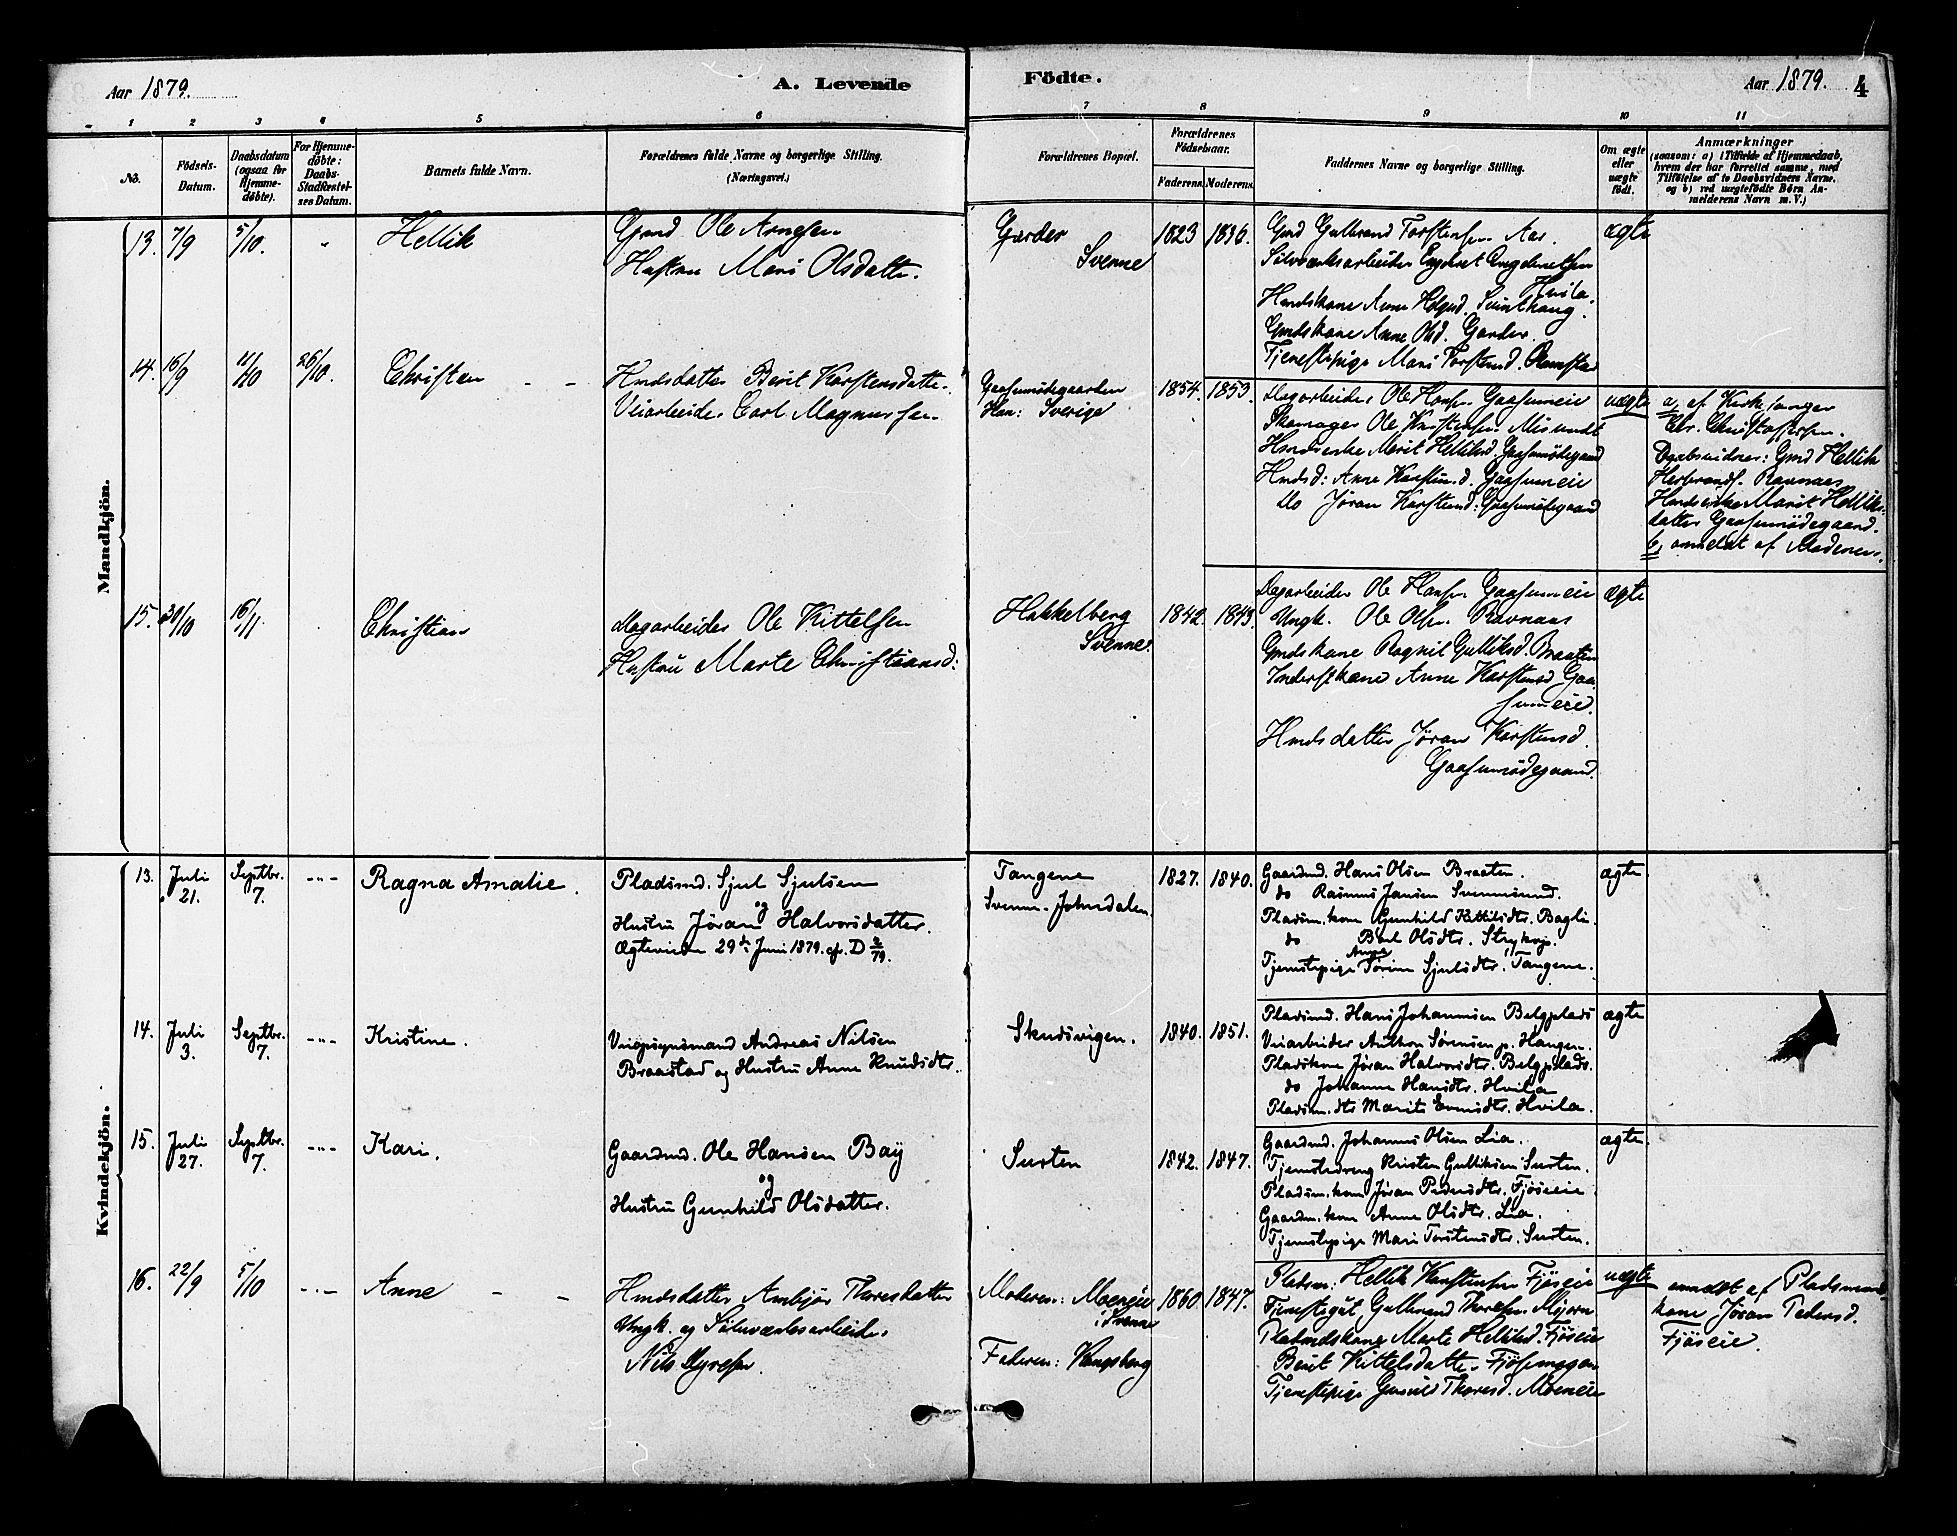 Aar 1879.
A. Levende
Födte.
Aar 1879.
4
1 2 3 4 5 6 7 8 9 10 11
No.
Födsels-Datum.
Daabsdatum (ogsaa for Hjemme-döbte).
For Hjemme-döbte: Daabs-Stadfæstel-ses Datum.
Barnets fulde Navn.
Forældrenes fulde Navne og borgerlige Stilling.
(Næringsvei.)
Forældrenes Bopæl.
Forældrenes Födselsaar.
Faderens. Moderens.
Faddernes Navne og borgerlige Stilling.
Om ægte eller uægte födt.
Anmærkninger
(saasom: a) i Tilfælde af Hjemmedaab, hvem der har forrettet samme, med Tilföielse af to Daabsvidners Navne, og b) ved uægtefödte Börn An-melderens Navn m. V.)
Mandkjön.
13. 7/9 5/10. " Hellik
Gmd Ole Arnesen
Hustru Mari Olsdatter.
Garder
Svenne
1823 1836.
Gmd Gulbrand Torstensen Aas.
Sölvværksarbeider Engebret Engebretsen
Hvila.
Hmdskone Anne
Gmdskone Anne Olsd. Garder.
Tjenestepige Mari Torstensd.
ægte
14. 16/9 11/10 26/10. Christen
Hmdsdatter Berit Karstensdatter.
Veiarbeider Carl Magnussen
Gaasumödegaarden
Han: Sverige
1854. 1853.
Dagarbeider Ole Hansen Gaasumeie
Skomager Ole Kristensen Misundt
Hmdsenke Marit Helliksd. Gaasumödegaard
Hmdsd: Anne Karstensd. Gaasumeie
Do Jøran Karstensd: Gaasumödegaard
uægte
a, af Kirkesanger
Chr. Christoffersen.
Daabsvidner: Gmd Hellik
Herbrands. Ravnaas
Hmdsenke Marit Helliks-
datter Gaasumödegaard.
b, anmeldt af Moderen.
15. 30/10 16/11 Christian
Dagarbeider Ole Kittelsen
Hustru Marte Christiansd:
Hakkelberg
Svenne.
1842 1843.
Dagarbeider Ole Hansen Gaasumeie
Ungk. Ole Olsen Ravnaas
Gmdskone Ragnil Gulliksd. Braaten
Inderstkone Anne Karstensd Gaa-
sumeie.
Hmdsdatter Jøran Karstensd.
Gaasumödegaard.
ægte
Kvindekjön.
13. Juli 21. Septbr. 7. -"- Ragna Amalie.
Pladsmd. Sjul Sjulsen
og
Hustru Jøran Halvorsdatter.
Ægteviede 29de Juni 1879. cf. D 2/79.
Tangene
Svenne-Johnsdalen.
1827. 1840.
Gaardmd. Hans Olsen Braaten.
do Rasmus Jansen Svennesund.
Pladsm. kone Gunhild Kittilsdtr. Baglie.
do Berit Olsdtr. Strykop.
Anne
Tjenestepige Torine Sjulsdtr. Tangene.
ægte
14. Juli 3. Septbr. 7. -"- Kristine.
Veiopsynsmand Andreas Nilsen
Braastad og Hustru Anne Knudsdtr.
Skudsvigen.
1840. 1851.
Pladsmd. Hans Johannesen Belgplads
Veiarbeider Anthon Sørensen p. Haugen.
Pladskone Jøran Halvorsdtr. Belgplads.
do Johanne Hansdtr. Hvila
Pladsm. dtr Marite Evensdtr. Hvila.
ægte
15. Juli 27. Septbr. 7. -"- Kari.
Gaardmd. Ole Hansen Bay
og
Hustru Gunhild Olsdatter.
Susten
1842. 1847.
Gaardmd. Johannes Olsen Lia.
Tjenestedreng Kristen Gulliksen Susten.
Pladsm. kone Jøran Pedersdtr. Fjöseie
Gaardm. kone Anne Olsdtr. Lia.
Tjenestepige Mari Torstensdtr. Susten.
ægte
16. 22/9 5/10 -"- Anne
Hmdsdatter Ambjør Thoresdatter
Ungk. og Sölvværksarbeider
Nils Myresen.
Moderen: Moeneie
Svenne
Faderen: Kongsberg
1860 1847.
Pladsm. Hellik Karstensen Fjöseie
Tjenestegut Gulbrand Thoresen Mjørn
Pladsmdskone Marte Helliksd. Fjöseie
Berit Kittelsdatter
Tjenestepige Gunild Thoresd. Moeneie
uægte
anmeldt af Pladsmand-
kone Jøran Pedersd.
Fjöseie.